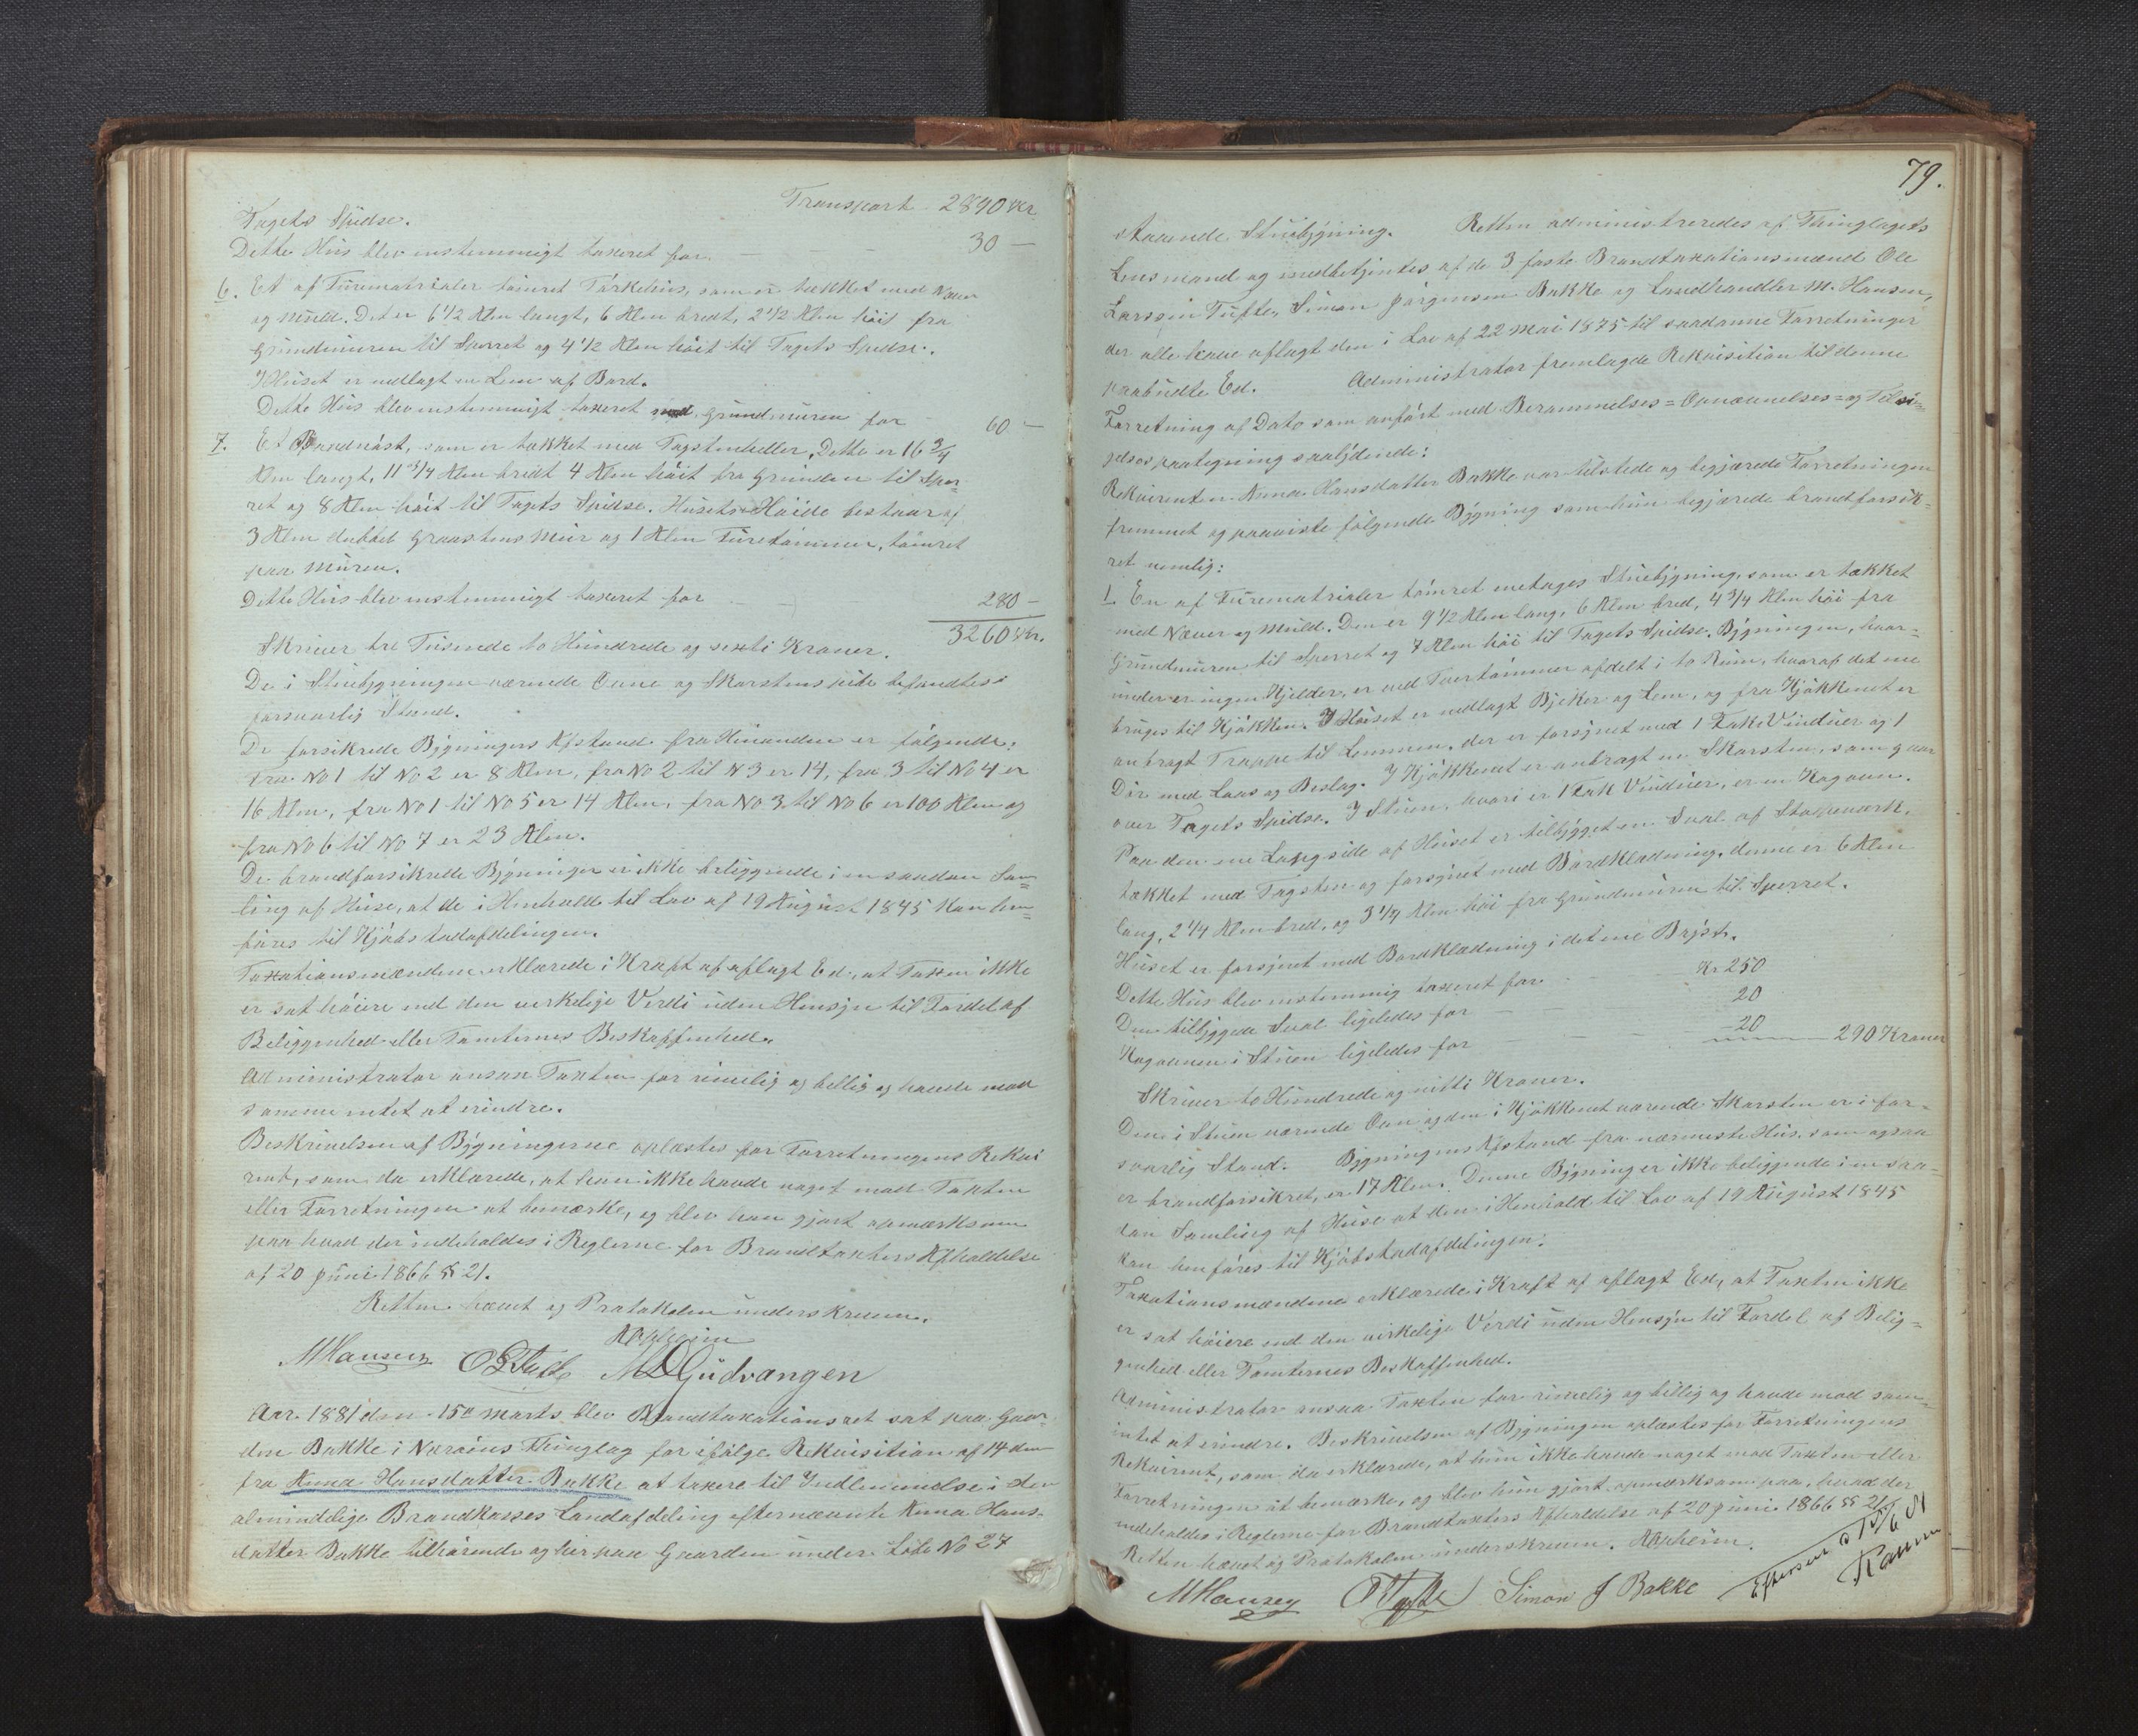 Transport 2890 Kr
Tagets Spidse.
Dette Hus blev enstemmigt taxeret for 30 —
6. Et af Furematrialer tømret Tørkehus, som er tækket med Næver
og Muld. Det er 6 1/2 Alen langt, 6 Alen bredt, 2 1/2 Alen høit fra
Grundmuren til Sperret og 4 1/2 Alen høit til Tagets Spidse.
I Huset er nedlagt en Lem af Bord.
Dette Hus blev enstemmigt taxeret med Grundmuren for 60 —
7. Et Vandnøst, som er tækket med Tagstenheller. Dette er 16 3/4
Alen langt, 11 3/4 Alen bredt 4 Alen høit fra Grunden til Sper=
ret og 8 Alen høit til Tagets Spidse. Husets Høide bestaar af
3 Alen dubbel Graastens Mur og 1 Alen Furetømmer, tømret
paa Muren.
Dette Hus blev enstemmigt taxeret for 280 —
3260 Kr.
Skriver tre Tusende to Hundrede og sexti Kroner.
De i Stuebygningen værende Ovne og Skorstenspibe befandtes i
forsvarlig Stand.
De forsikrede Bygningers Afstand fra Hinanden er følgende:
Fra No 1 til No 2 er 8 Alen, fra No 2 til N 3 er 14, fra 3 til No 4 er
16 Alen, fra No 1 til No 5 er 14 Alen, fra No 3 til No 6 er 100 Alen og
fra No 6 til No 7 er 23 Alen.
De brandforsikrede Bygninger er ikke beliggende i en saadan Sam=
ling af Huse, at de i Henhold til Lov af 19 August 1845 kan hen=
føres til Kjøbstadafdelingen.
Taxationsmændene erklærede i Kraft af aflagt Ed, at Taxten ikke
er sat høiere end den virkelige Verdi uden Hensyn til Fordel af
Beliggenhed eller Tomternes Beskaffenhed.
Administrator ansaa Taxten for rimelig og billig og havde mod
samme intet at erindre.
Beskrivelsen af Bygningerne oplæstes for Forretningens Rekvi
rent, som da erklærede, at han ikke havde noget mod Taxten
eller Forretningen at bemærke, og blev han gjort opmærksom
paa hvad der indeholdes i Reglerne for Brandtaxters Afholdelse
af 20 Juni 1866 §§ 21.
Retten hævet og Protokolen underskreven.
MHansen OLTufte M Gudvangen
Aar 1881 den 15de Marts blev Brandtaxationsret sat paa Gaar=
den Bakke i Nærøens Thinglag for ifølge Rekvisition af 14 dennes
fra Anna Hansdatter Bakke at taxere til Indlemmelse i den
almindelige Brandkasses Landafdeling efternævnte Anna Hans-
datter Bakke tilhørende og her paa Gaarden under Løbe No 27
79.
staaende Stuebygning. Retten administreredes af Thinglagets
Lensmand og medbetjentes af de 3 faste Brandtaxationsmænd Ole
Larssen Tufte, Simon Jørgensen Bakke og Landhandler M. Hansen,
der alle have aflagt den i Lov af 22 Mai 1875 til saadanne Forretninger
paabudte Ed. Administrator fremlagde Rekvisition til denne
Forretning af Dato som anført med Berammelses= Opnævnelses= og Tilsi=
gelsespaategning saalydende:
Rekvirenten Anna Hansdatter Bakke var tilstede og begjærede Forretningen
fremmet og paaviste følgende Bygning som hun begjærede brandforsik=
ret nemlig:
1. En af Furematrialer tømret enetages Stuebygning, som er tækket
med Næver og Muld. Den er 9 1/2 Alen lang, 6 Alen bred, 4 3/4 Alen høi fra
Grundmuren til Sperret og 7 Alen høi til Tagets Spidse. Bygningen, hvor=
under er ingen Kjelder, er ved Tvertømmer afdelt i to Rum, hvoraf det ene
bruges til Kjøkken. I Huset er nedlagt Bjelker og Lem, og fra Kjøkkenet er
anbragt Trappe til Lemmen, der er forsynet med 1 Fak Vinduer og 1
Dør med Laas og Beslag. I Kjøkkenet er anbragt en Skorsten, som gaar
over Tagets Spidse. I Stuen, hvori er 1 Fak Vinduer, er en Kogovn.
Paa den ene Langside af Huset er tilbygget en Sval af Stavværk,
tækket med Tagsten og forsynet med Bordklædning, denne er 6 Alen
lang, 2 1/4 Alen bred, og 3 1/4 Alen høi fra Grundmuren til Sperret.
Huset er forsynet med Bordklædning i det ene Bryst.
Dette Hus blev enstemmig taxeret for Kr 250
Den tilbyggede Sval ligeledes for 20
Kogovnen i Stuen ligeledes for 20 290 Kroner
Skriver to Hundrede og nitti Kroner.
Den i Stuen værende Ovn og den i Kjøkkenet værende Skorsten er i for=
svarlig Stand. Bygningens Afstand fra nærmeste Hus, som ogsaa
er brandforsikret, er 17 Alen. Denne Bygning er ikke beliggende i en saa=
dan Samling af Huse at den i Henhold til Lov af 19 August 1845
kan henføres til Kjøbstadafdelingen.
Taxationsmændene erklærede i Kraft af aflagt Ed, at Taxten ikke
er sat høiere end den virkelige Verdi uden Hensyn til Fordel af Belig=
genhed eller Tomternes Beskaffenhed.
Administrator ansaa Taxten for rimelig og billig og havde mod sam=
intet at erindre. Beskrivelsen af Bygningen oplæstes for Forretningens
Rekvirent, som da erklærede, at hun ikke havde noget mod Taxten eller
Forretningen at bemærke, og blev hun gjort opmærksom paa, hvad der
indeholdes i Reglerne for Brandtaxters Afholdelse af 20 Juni 1866 §§ 21.
Retten hævet og Protokolen underskreven.
MHansen OLTufte Simon J Bakke
Efterseet 15/6 81